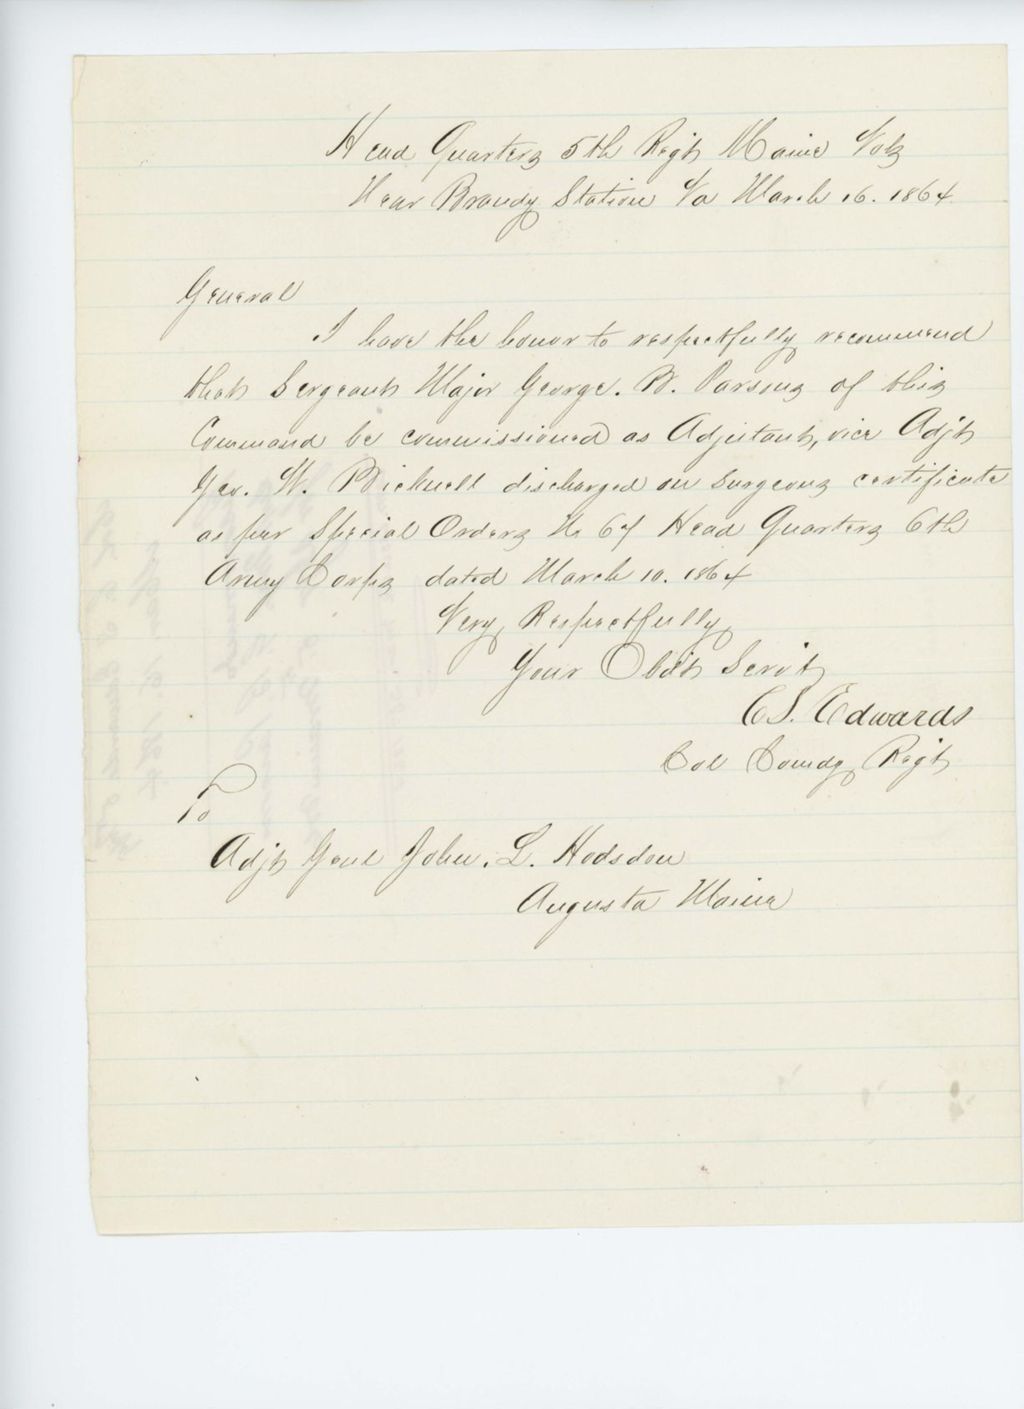 Head Quarters 5th Regt Maine Vols
Near Brandy Station Va March 16. 1864
General
I have the honor to respectfully recommend
that Sergeant Major George. B. Parsons of this
Command be commissioned as Adjutant, vice Adjt
Geo. W. Bicknell discharged on Surgeons certificate
as per Special Orders No 67 Head Quarters 6th
Army Corps dated March 10. 1864
Very Respectfully
Your Obdt Servt
C S. Edwards
Col Comdg Regt
To
Adjt Genl John. L. Hodsdon
Augusta Maine